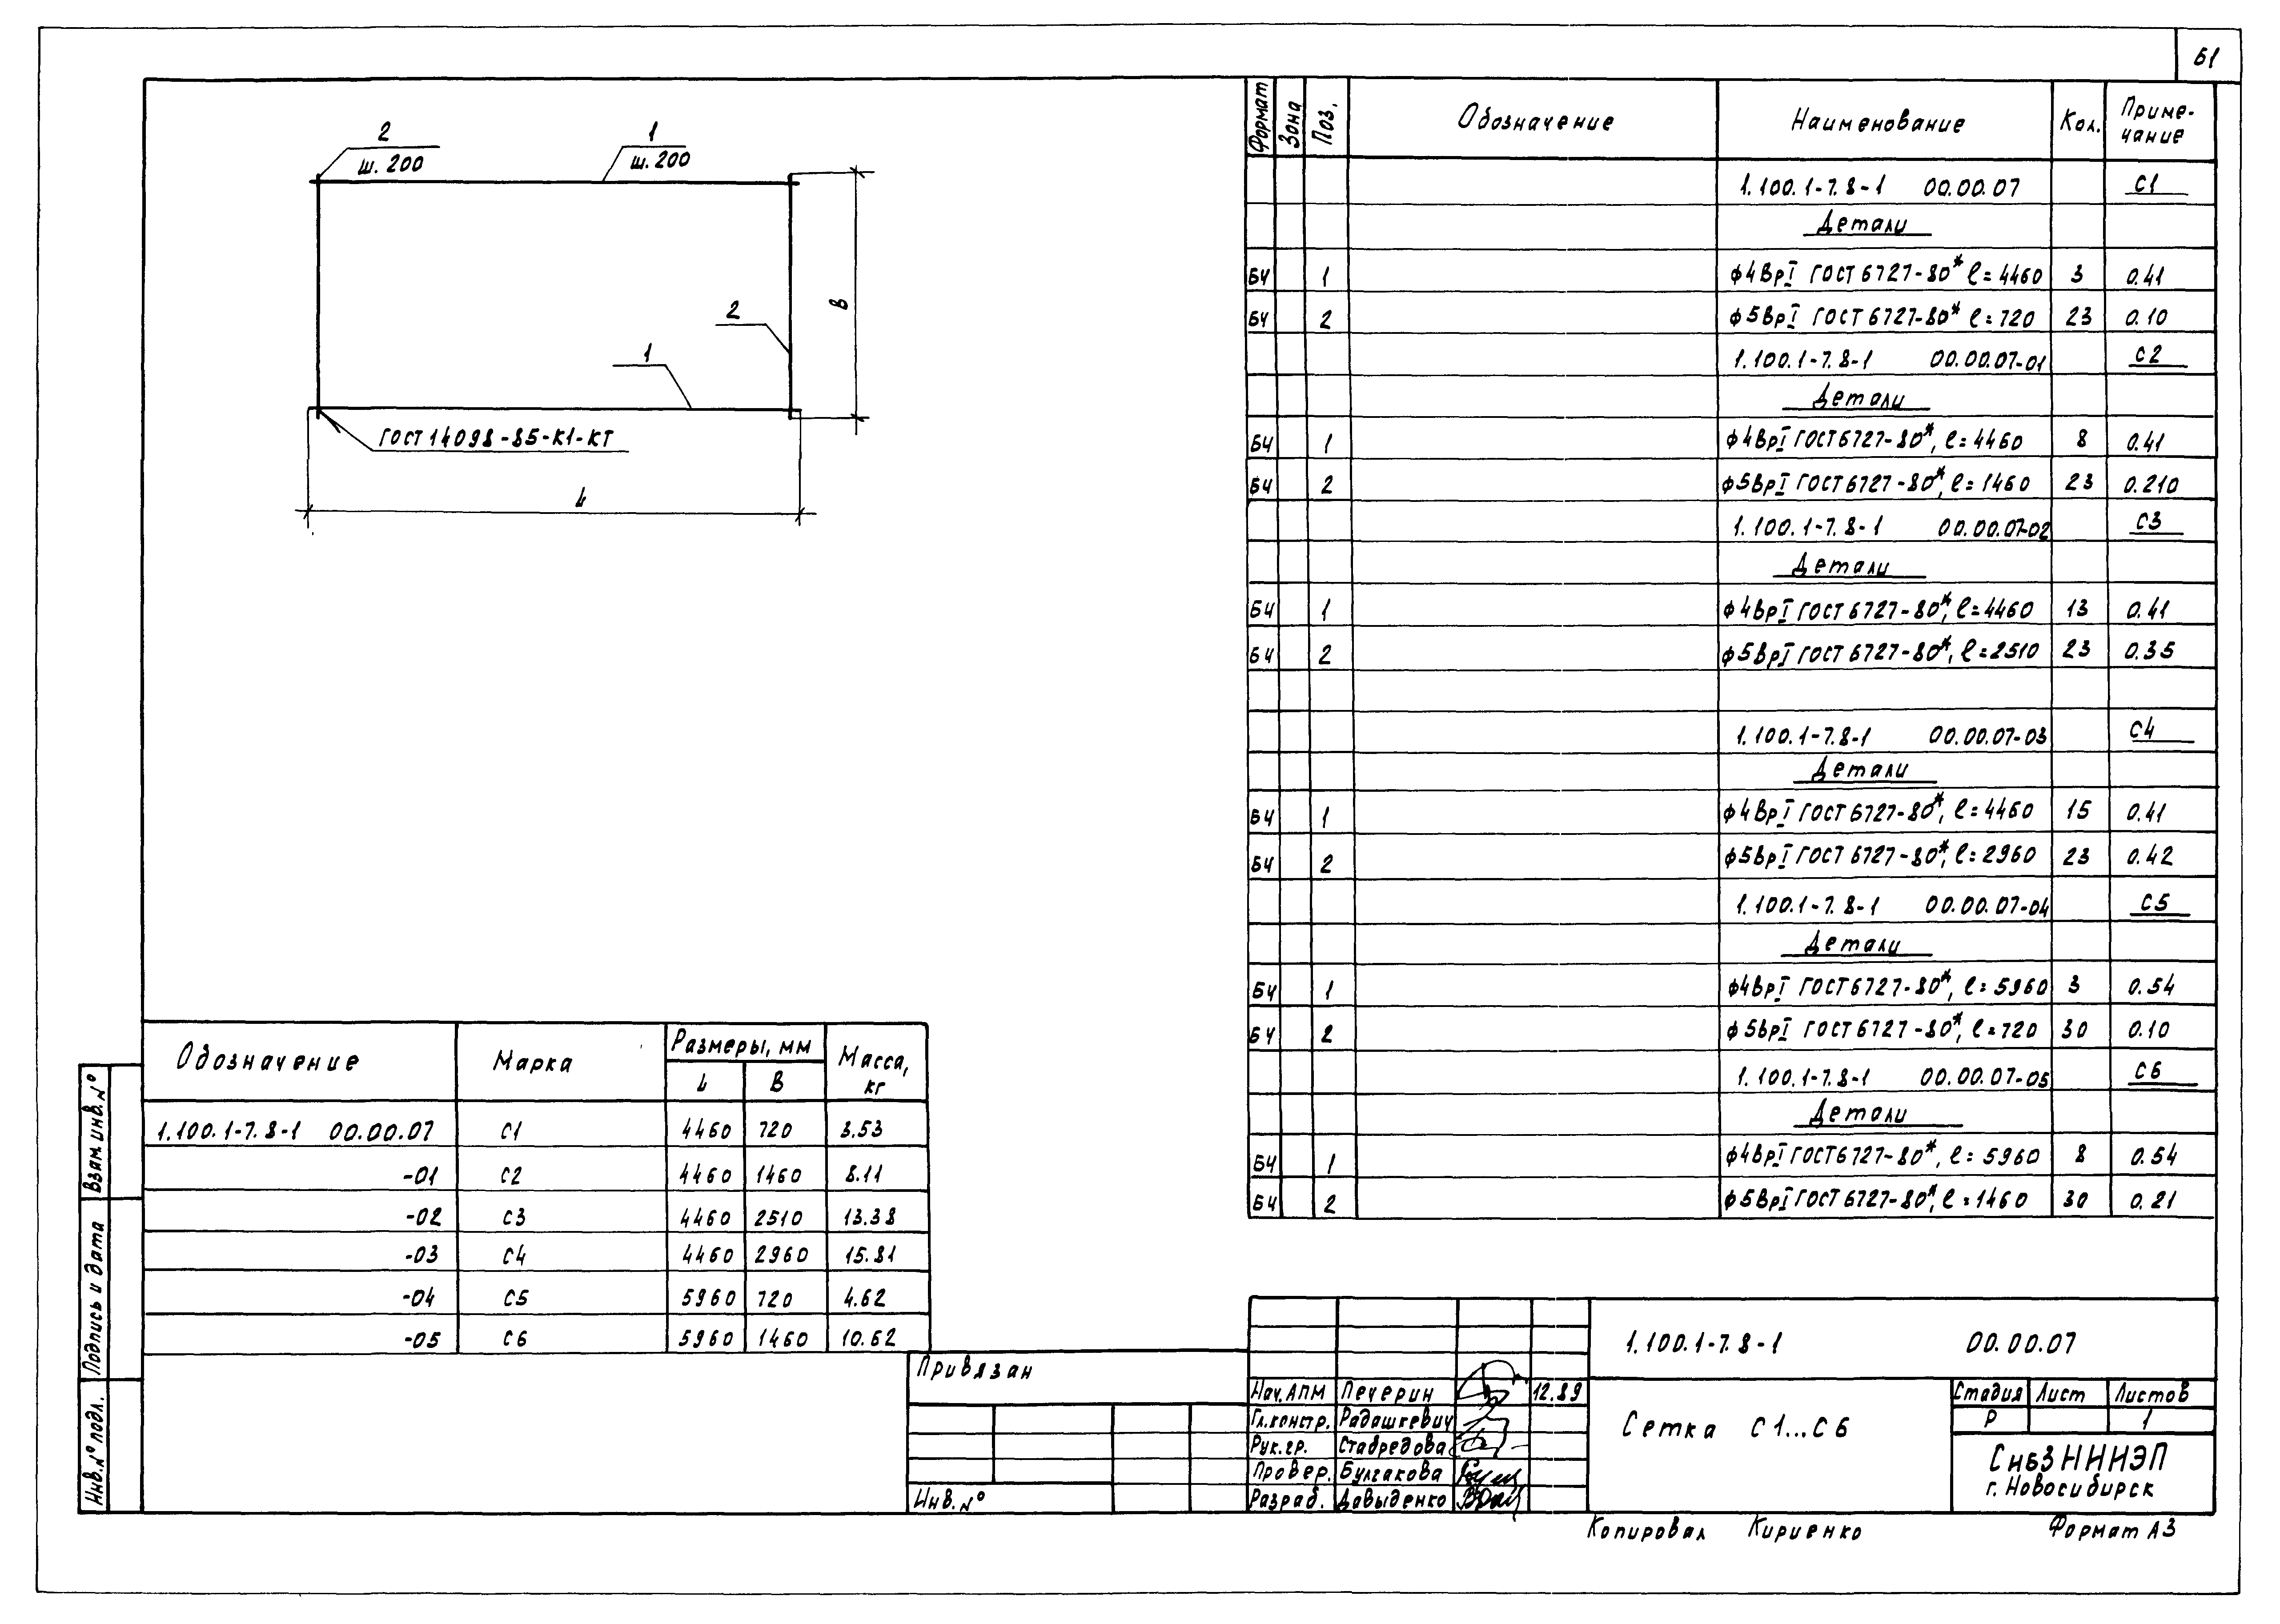 Б1
2
ш. 200
1
ш. 200
2
1
В
ГОСТ 14098-85-К1-КТ
L
Формат Зона Поз. Обозначение Наименование Кол. Приме-
чание
1.100.1-7.8-1 00.00.07 С1
Детали
БЧ 1 ϕ4ВрI ГОСТ 6727-80* ℓ=4460 3 0.41
БЧ 2 ϕ5ВрI ГОСТ 6727-80* ℓ=720 23 0.10
1.100.1-7.8-1 00.00.07-01 С2
Детали
БЧ 1 ϕ4ВрI ГОСТ 6727-80*, ℓ=4460 8 0.41
БЧ 2 ϕ5ВрI ГОСТ 6727-80*, ℓ=1460 23 0.210
1.100.1-7.8-1 00.00.07-02 С3
Детали
БЧ 1 ϕ4ВрI ГОСТ 6727-80*, ℓ=4460 13 0.41
БЧ 2 ϕ5ВрI ГОСТ 6727-80*, ℓ=2510 23 0.35
1.100.1-7.8-1 00.00.07-03 С4
Детали
БЧ 1 ϕ4ВрI ГОСТ 6727-80*, ℓ=4460 15 0.41
БЧ 2 ϕ5ВрI ГОСТ 6727-80*, ℓ=2960 23 0.42
1.100.1-7.8-1 00.00.07-04 С5
Детали
БЧ 1 ϕ4ВрI ГОСТ 6727-80*, ℓ=5960 3 0.54
БЧ 2 ϕ5ВрI ГОСТ 6727-80*, ℓ=720 30 0.10
1.100.1-7.8-1 00.00.07-05 С6
Детали
БЧ 1 ϕ4ВрI ГОСТ 6727-80*, ℓ=5960 8 0.54
БЧ 2 ϕ5ВрI ГОСТ 6727-80*, ℓ=1460 30 0.21
Обозначение Марка Размеры, мм Масса, кг
L В
1.100.1-7.8-1 00.00.07 С1 4460 720 3.53
-01 С2 4460 1460 8.11
-02 С3 4460 2510 13.38
-03 С4 4460 2960 15.81
-04 С5 5960 720 4.62
-05 С6 5960 1460 10.62
Взам. инв. №
Подпись и дата
Инв. № подл.
Привязан
Инв. №
1.100.1-7.8-1 00.00.07
Нач. АПМ Печерин 12.89
Гл. констр. Радашкевич
Рук. гр. Стабредова
Провер. Булгакова
Разраб. Давыденко
Сетка С1...С6
Стадия Лист Листов
Р 1
СибЗНИИЭП
г. Новосибирск
Копировал Кириенко Формат А3